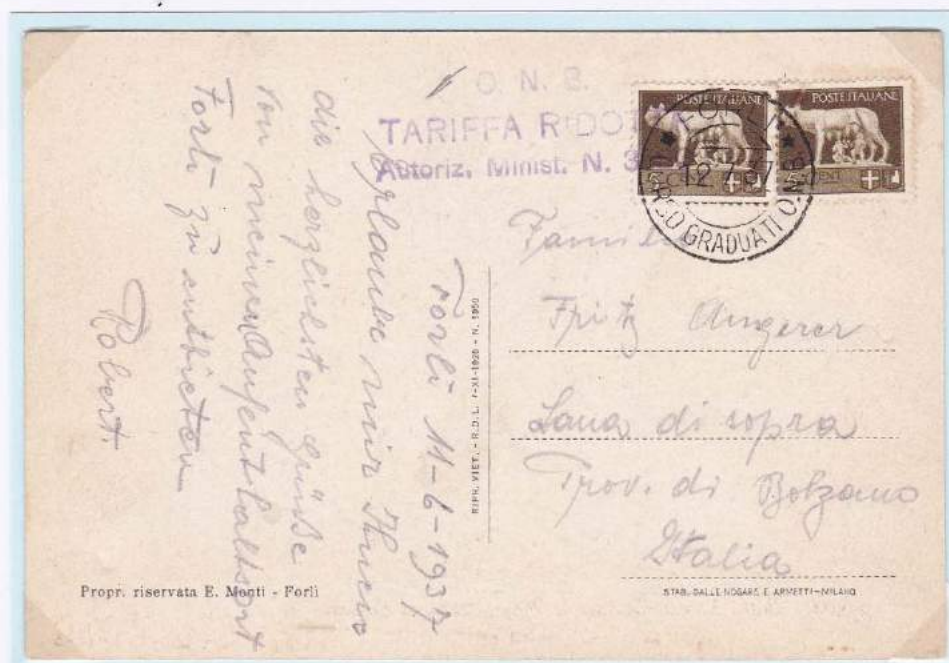 O. N. B.
TARIFFA RIDOT
Autoriz. Minist. N. 3
POSTE ITALIANE
POSTE ITALIANE
FORLI
12.7.37
GRADUATI O.N.B.
Forli 11-6-1937
erlaube mir Ihnen
die herzlichsten Grüße
von meinem Aufenthaltsort
Forli zu entbieten
Robert.
RIPR. VIET. - R.D.L. 7-XI-1925 - N. 1950
Familie
Fritz Angerer
Lana di sopra
Prov. di Bolzano
Italia
Propr. riservata E. Monti - Forlì
STAB. DALLE NOGARE E ARMETTI-MILANO